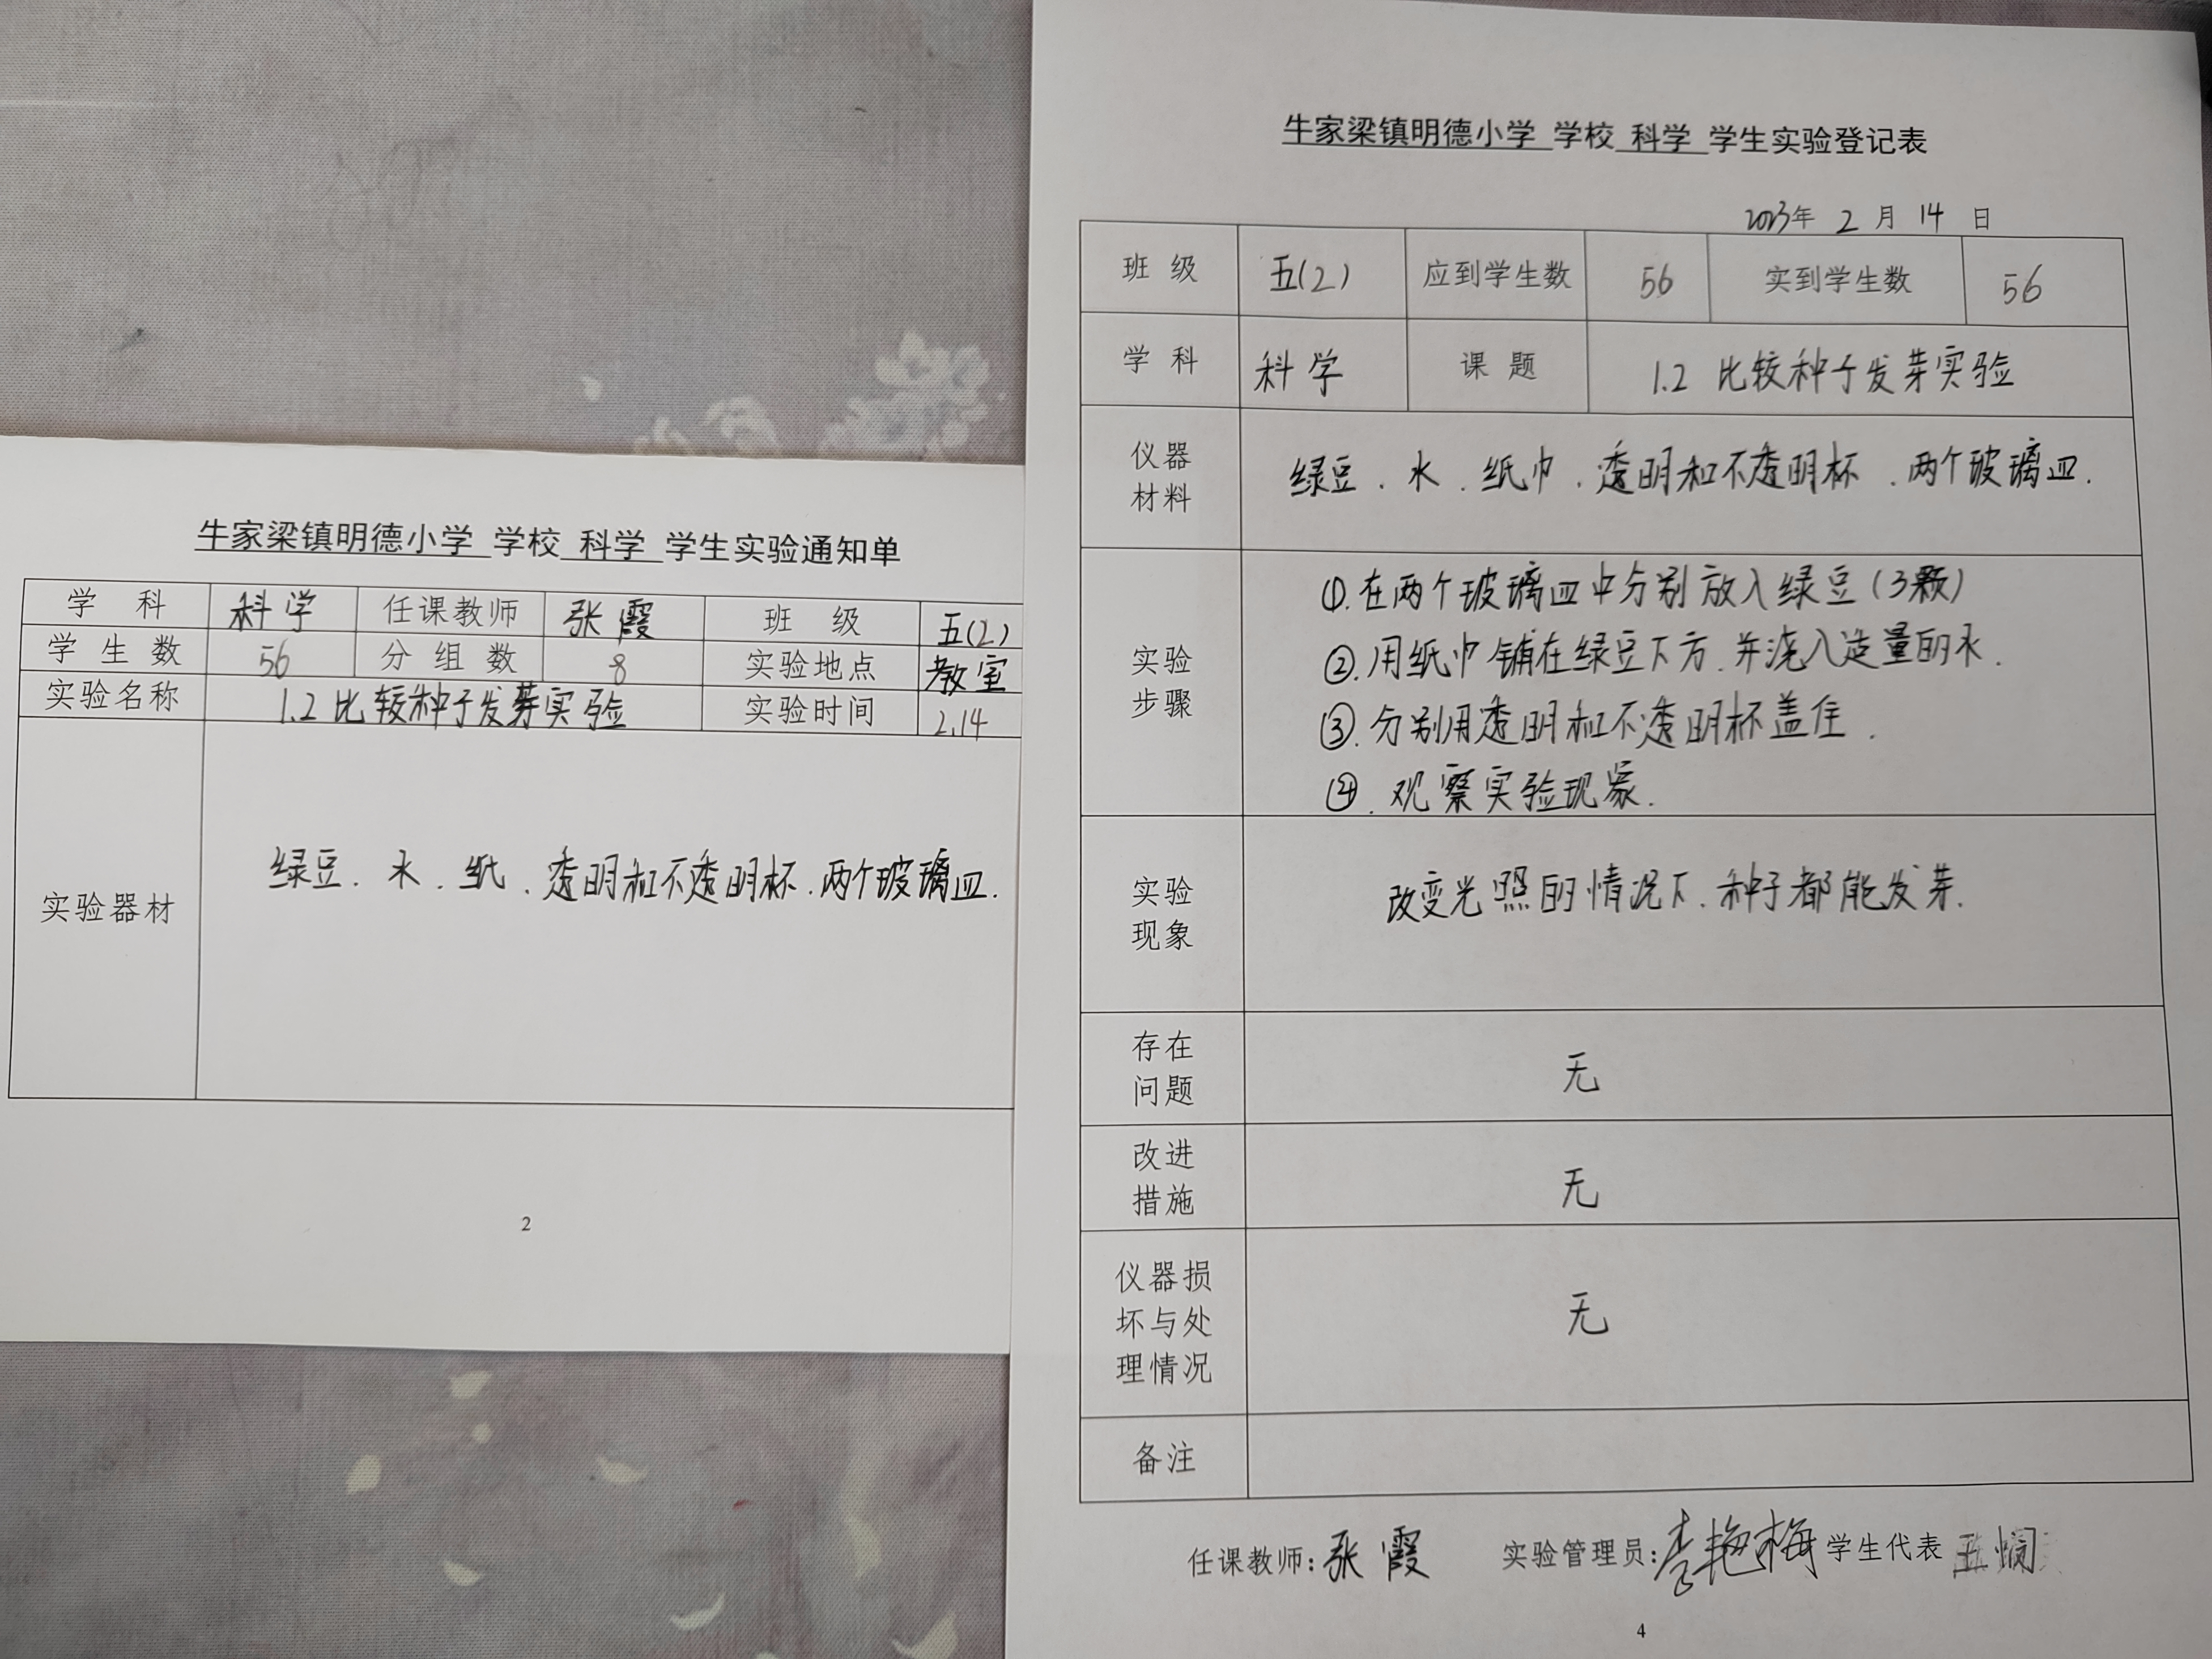 牛家梁镇明德小学 学校 科学 学生实验通知单
学 科 科学 任课教师 张霞 班 级 五(2)
学 生 数 56 分 组 数 8 实验地点 教室
实验名称 1.2 比较种子发芽实验 实验时间 2.14
实验器材 绿豆、水、纸、透明和不透明杯、两个玻璃皿.
2
牛家梁镇明德小学 学校 科学 学生实验登记表
2023年 2 月 14 日
班 级 五(2) 应到学生数 56 实到学生数 56
学 科 科学 课 题 1.2 比较种子发芽实验
仪器
材料
绿豆、水、纸巾、透明和不透明杯、两个玻璃皿.
实验
步骤
①.在两个玻璃皿中分别放入绿豆(3颗)
②.用纸巾铺在绿豆下方.并浇入适量的水.
③.分别用透明和不透明杯盖住.
④.观察实验现象.
实验
现象
改变光照的情况下.种子都能发芽.
存在
问题
无
改进
措施
无
仪器损
坏与处
理情况
无
备注
任课教师:张霞 实验管理员:李艳梅 学生代表
4